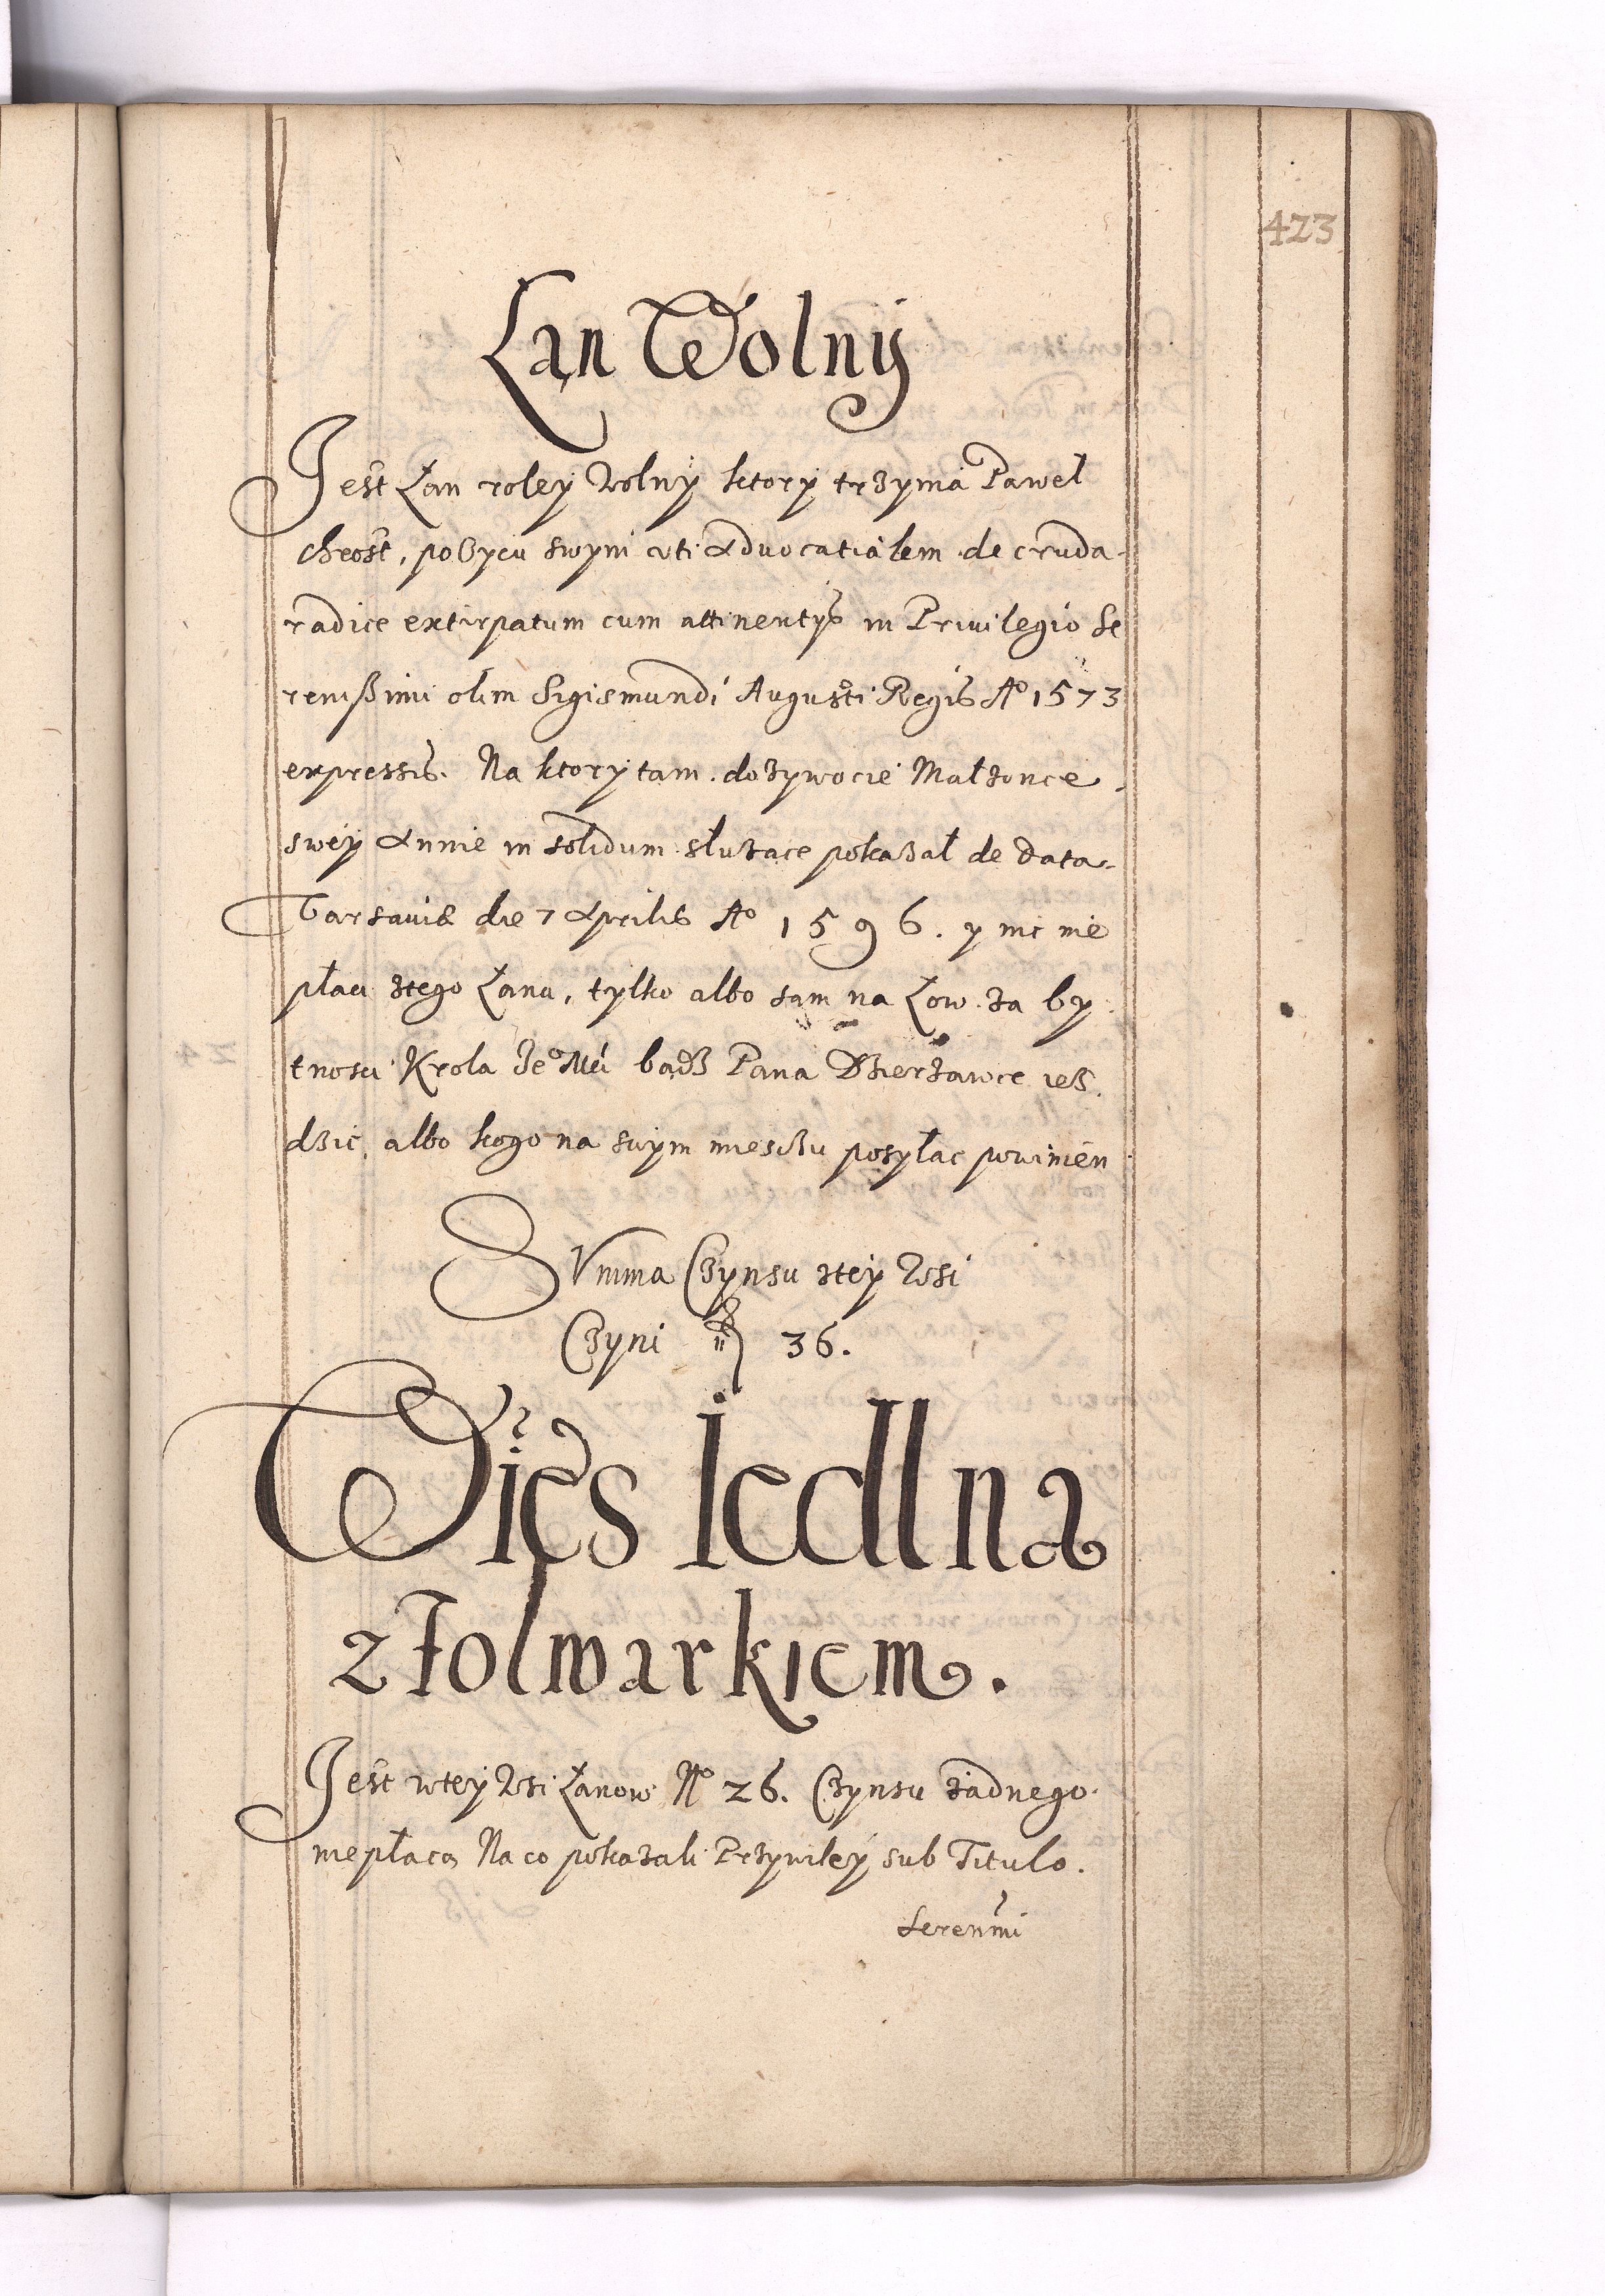 423
Łan Wolny
Jest Łan roley Wolny ktory trzyma Paweł
Chrost, po Oycu swym uti Advocatialem de cruda
radice extirpatum cum attinentys in Privilegio Se
renißimi olim Sigismundi Augusti Regis Aº 1573
expressis. Na ktory tam dozywocie Małzonce
swey Annie in solidum słuzące pokazał de data
Varsaviæ die 7 Aprilis Aº 1596. y nic nie
płaci ztego Łanu, tylko albo sam na Łow za by
tnosci Krola Jeº Mci bądz Pana Dzierzawce iez
dzic, albo kogo na swym mieyscu posyłac powinien
SVmma Czynsu ztey Wsi
Czyni 36.
Wies Iedlna
z Folwarkiem.
Jest wtey Wsi Łanow Nº 26. Czynsu zadnego
niepłacą Na co pokazali Przywiley sub Titulo.
Serenmi